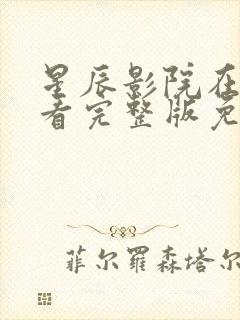 星辰影院在
看完整版免
菲尔罗森塔尔